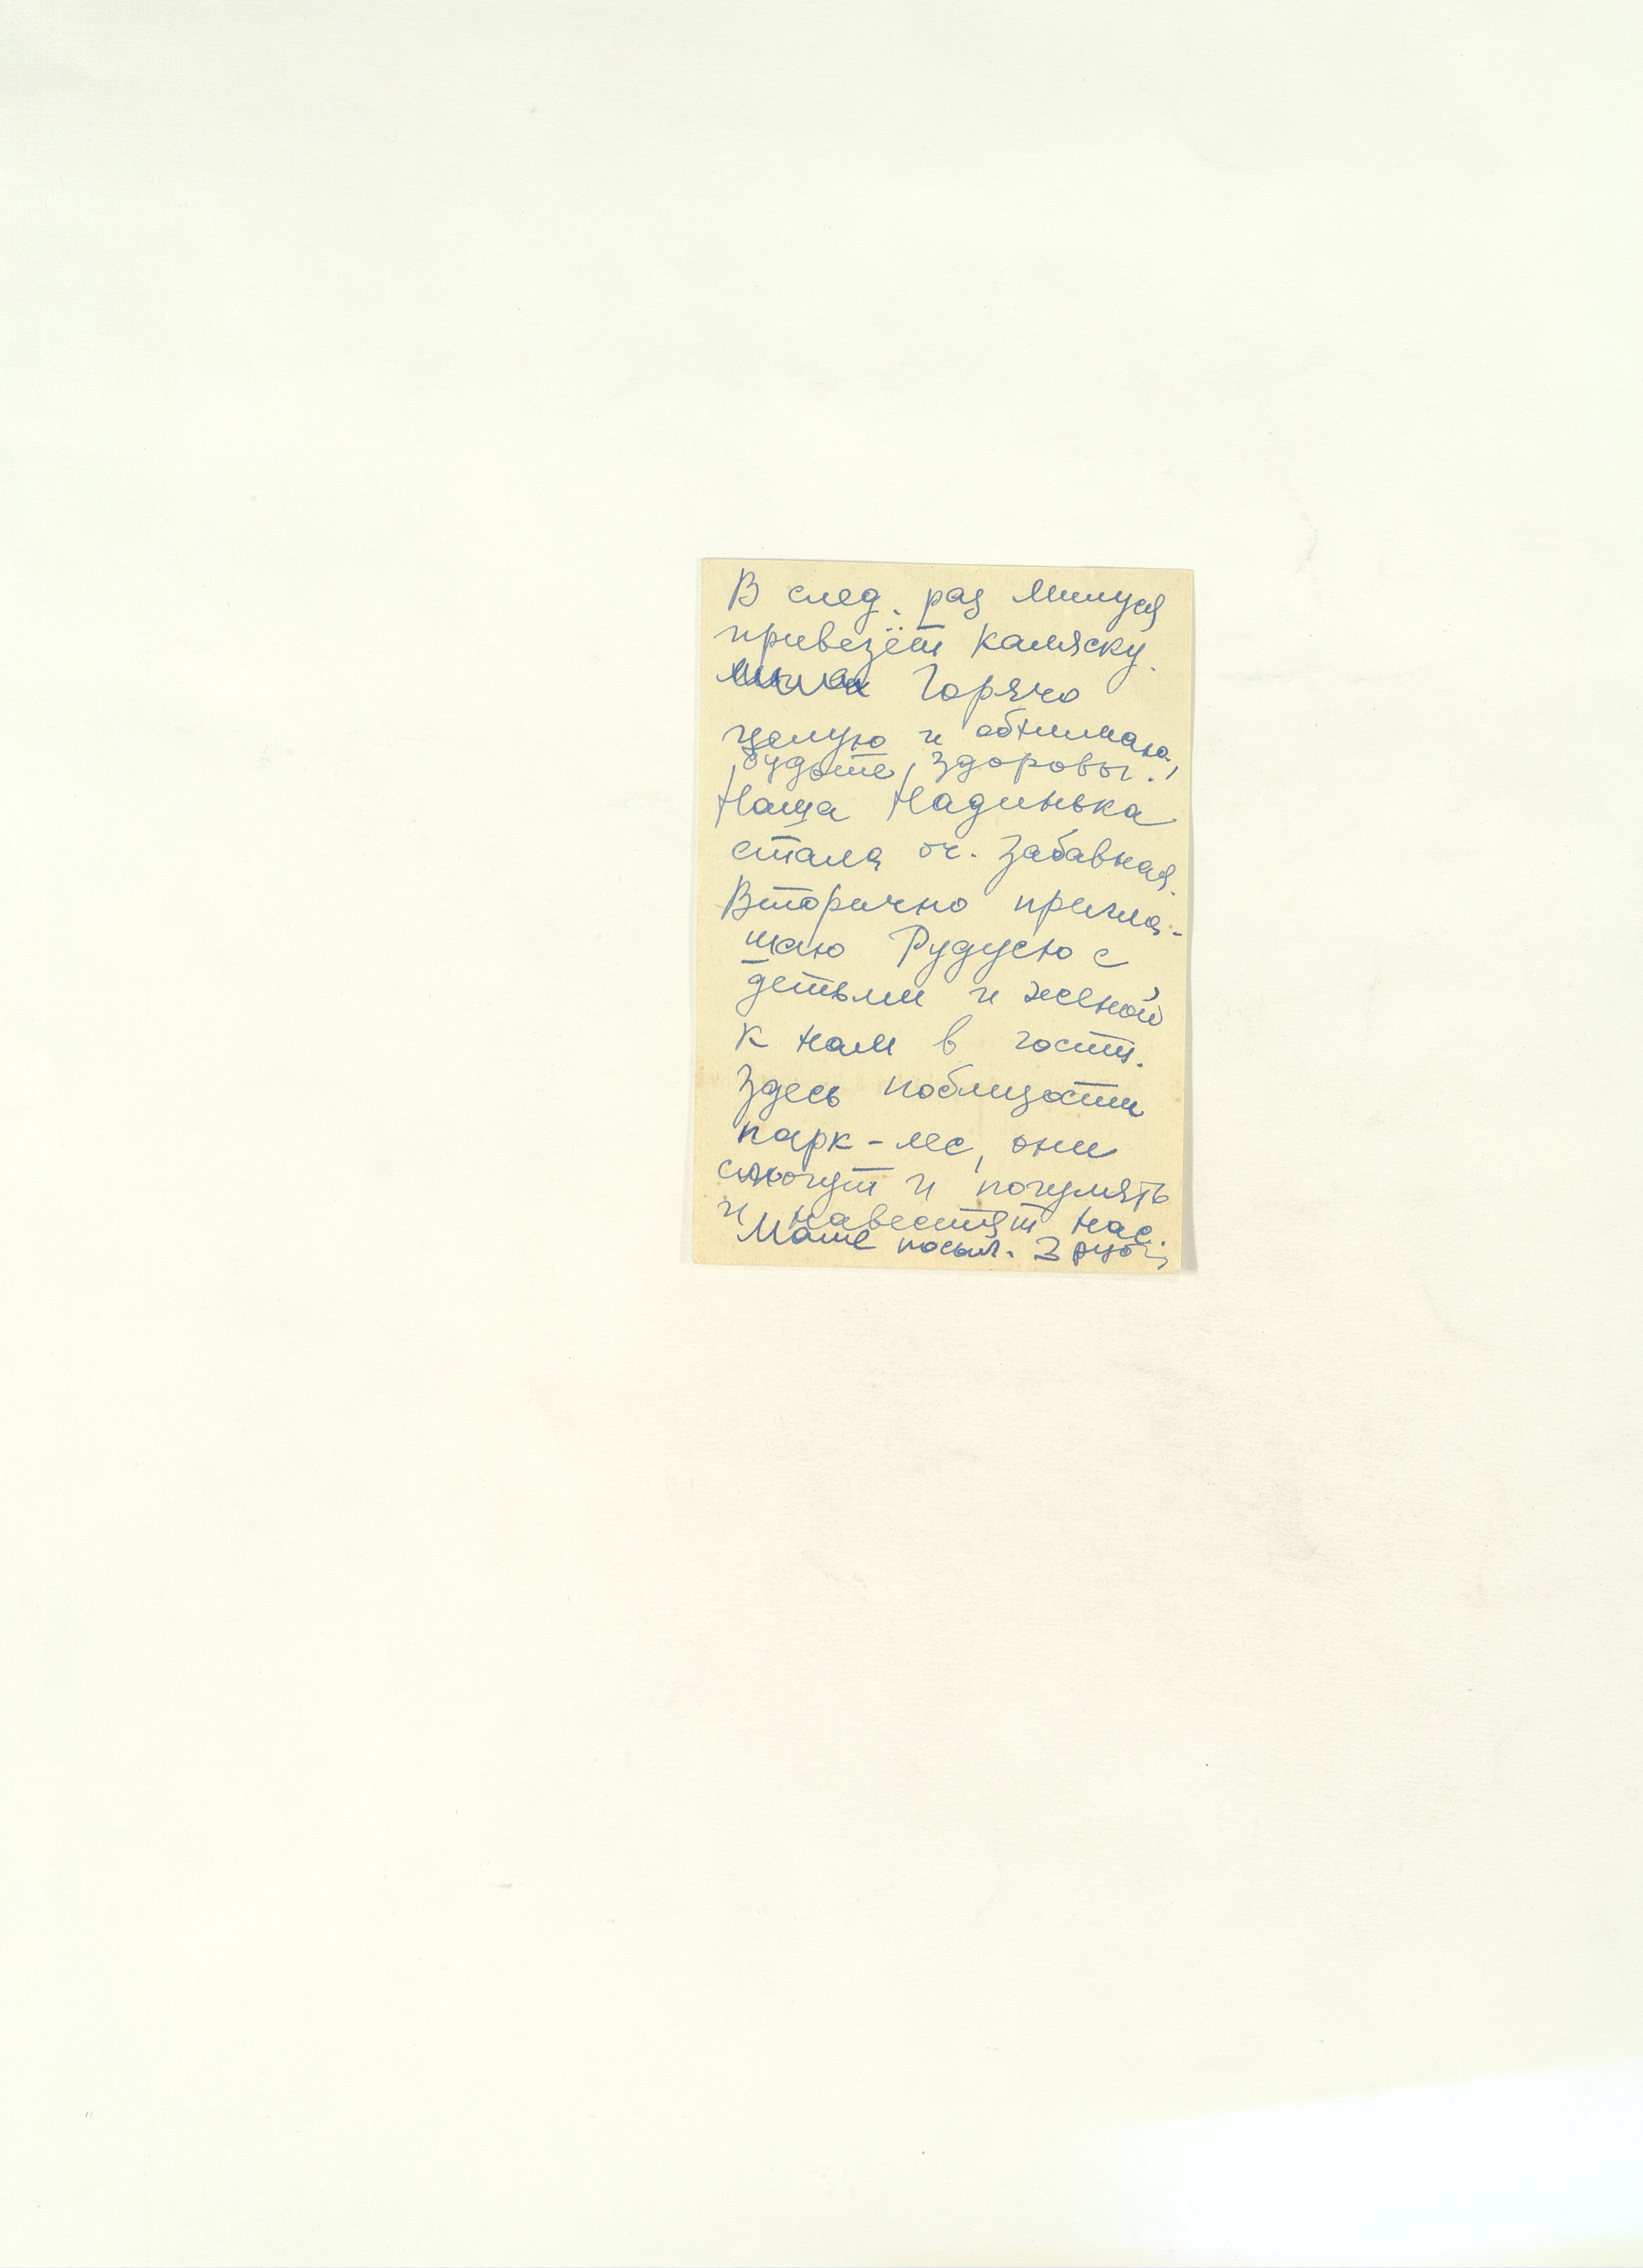 В след. раз Милуся
привезёт каляску.
Горячо
целую и обнимаю,
будьте здоровы!
Наша Надинька
стала оч. забавная.
Вторично пригла-
шаю Рудусю с
детьми и женой
к нам в гости.
Здесь поблизости
парк-лес, они
смогут и погулять
и навестят нас.
Маше посыл. 3 руб.